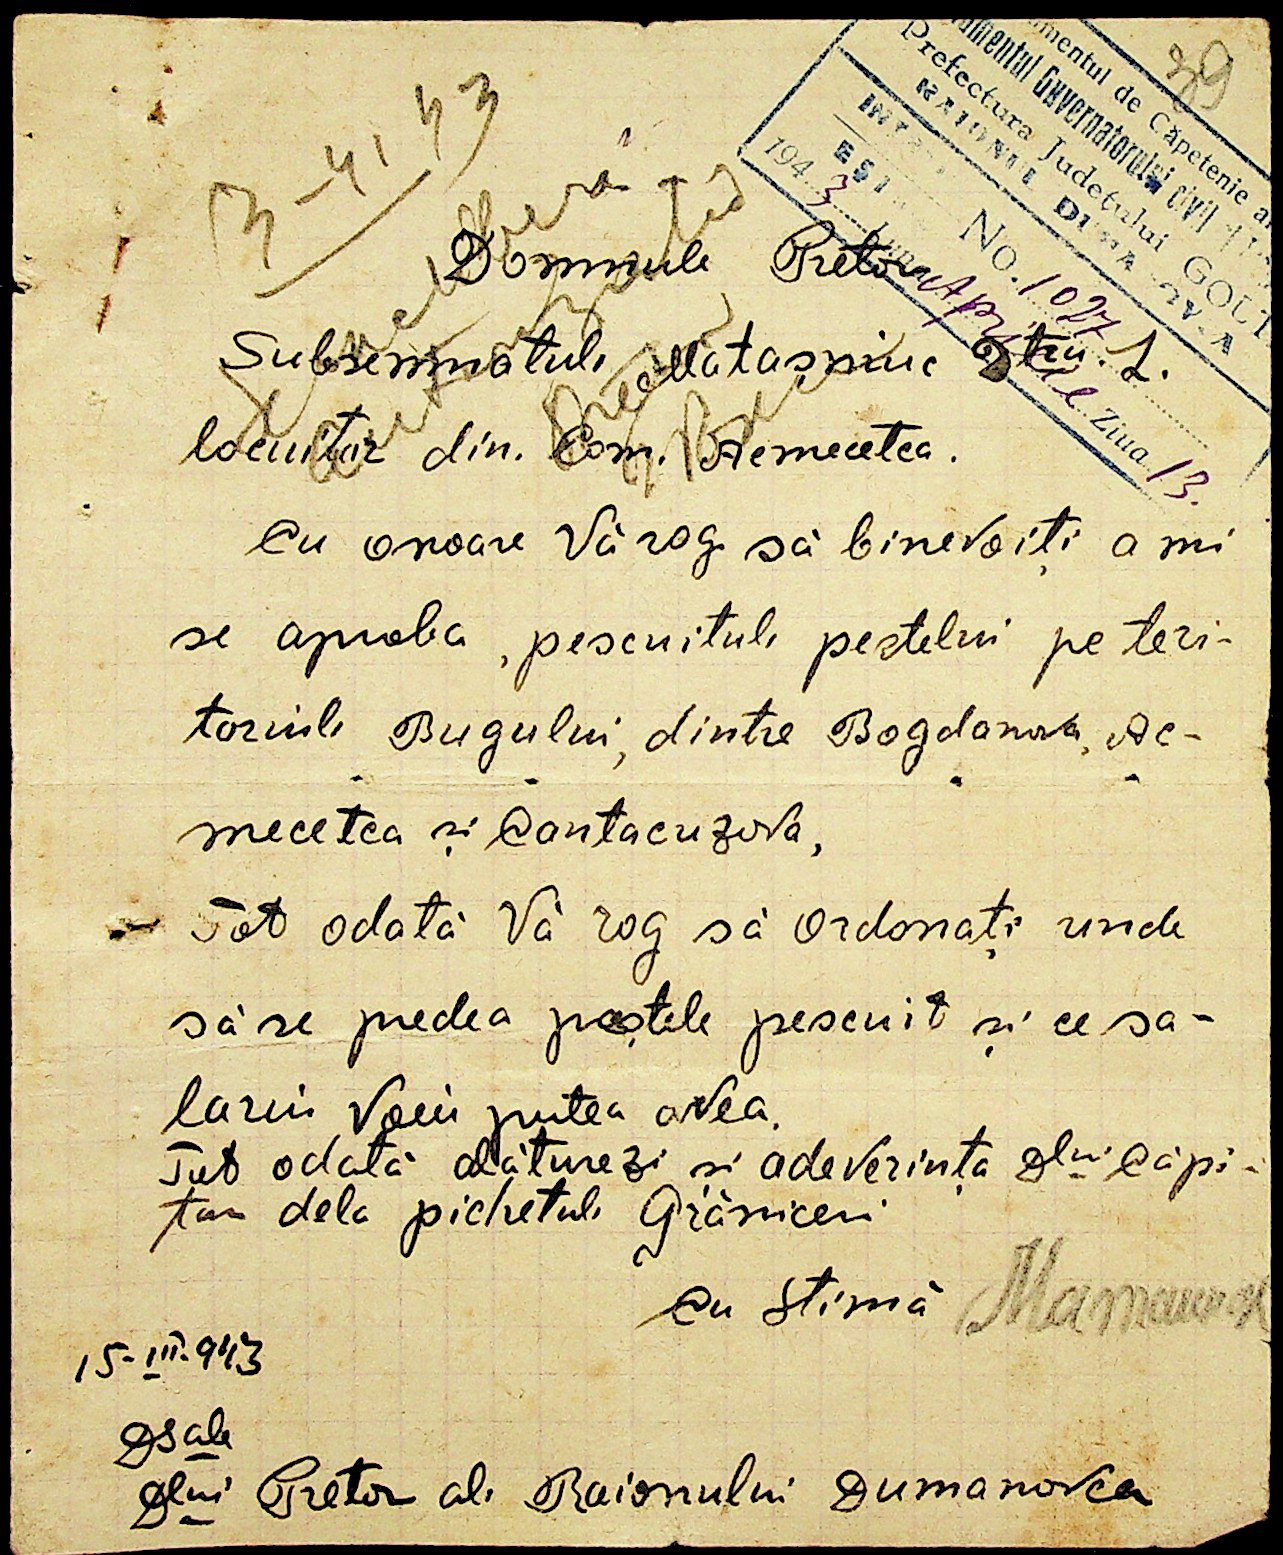 39
Prefectura Județului GOLT
No. 1027
194 3
Luna Aprilie Ziua 13.
3-4-43
Domnule Pretor
Subsemnatul Matașniuc D-tru. L.
locuitor din. Com. Acmecetca.
Cu onoare Vă rog să binevoiți a mi
se aproba, pescuitul peștelui pe teri-
toriul Bugului, dintre Bogdanova, Ac-
mecetca și Cantacuzova,
Tot odată Vă rog să ordonați unde
să se predea peștele pescuit și ce sa-
lariu voiu putea avea.
Tot odată alăturezi și adeverința Dlui Căpi-
tan dela pichetul Grăniceri
Cu stimă
15-III-943
Dsale
Dlui Pretor al Raionului Dumanovca